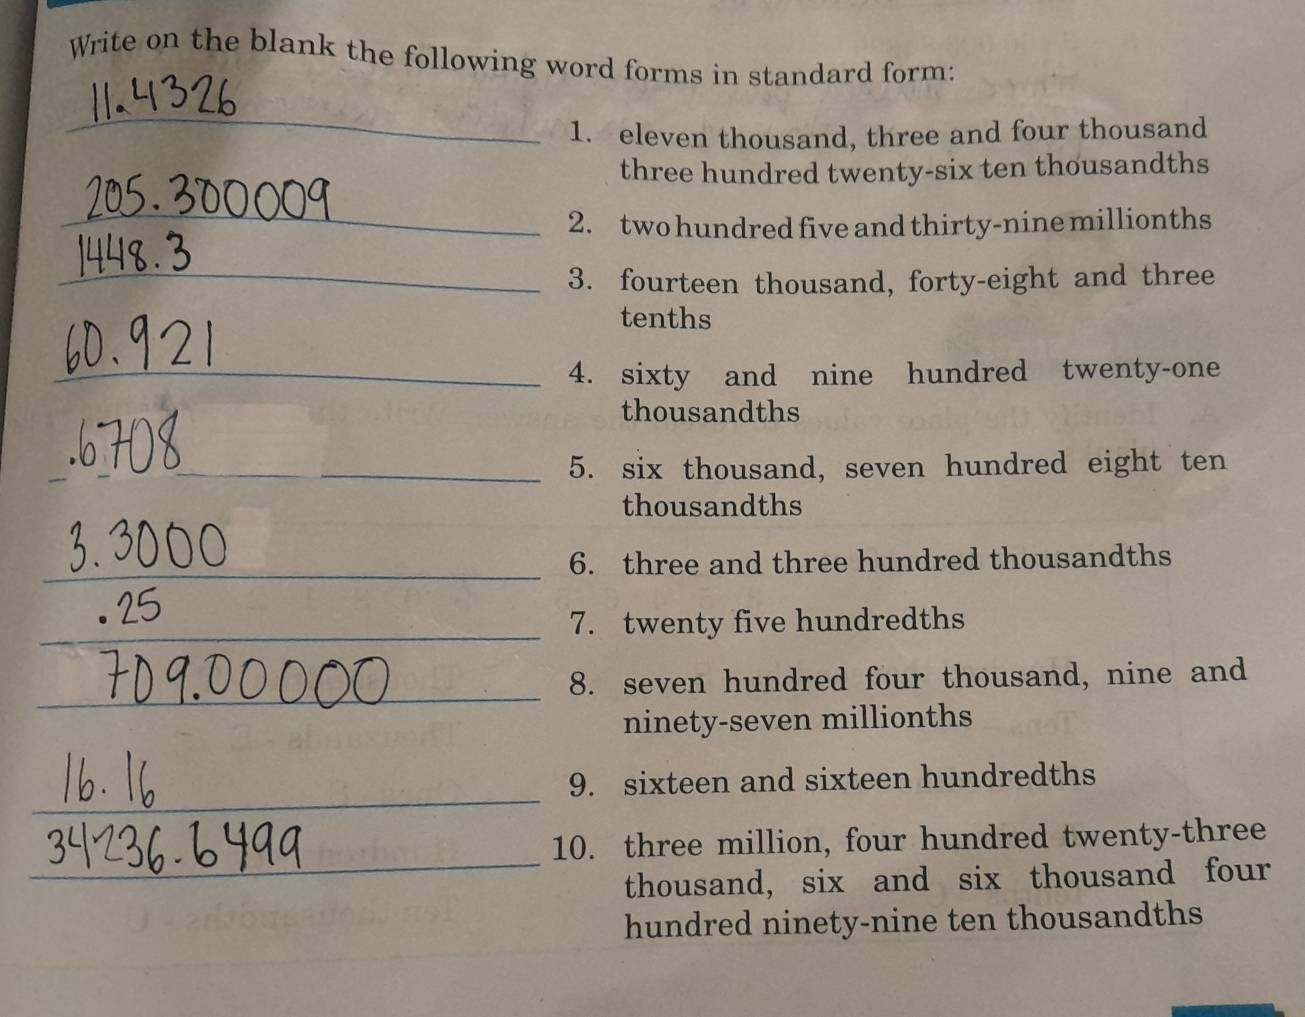 Write on the blank the following word forms in standard form:
11.4326
1. eleven thousand, three and four thousand
three hundred twenty-six ten thousandths
205.300009
2. two hundred five and thirty-nine millionths
1448.3
3. fourteen thousand, forty-eight and three
tenths
60.921
4. sixty and nine hundred twenty-one
thousandths
.6708
5. six thousand, seven hundred eight ten
thousandths
3.3000
6. three and three hundred thousandths
.25
7. twenty five hundredths
709.00000
8. seven hundred four thousand, nine and
ninety-seven millionths
16.16
9. sixteen and sixteen hundredths
34236.6499
10. three million, four hundred twenty-three
thousand, six and six thousand four
hundred ninety-nine ten thousandths